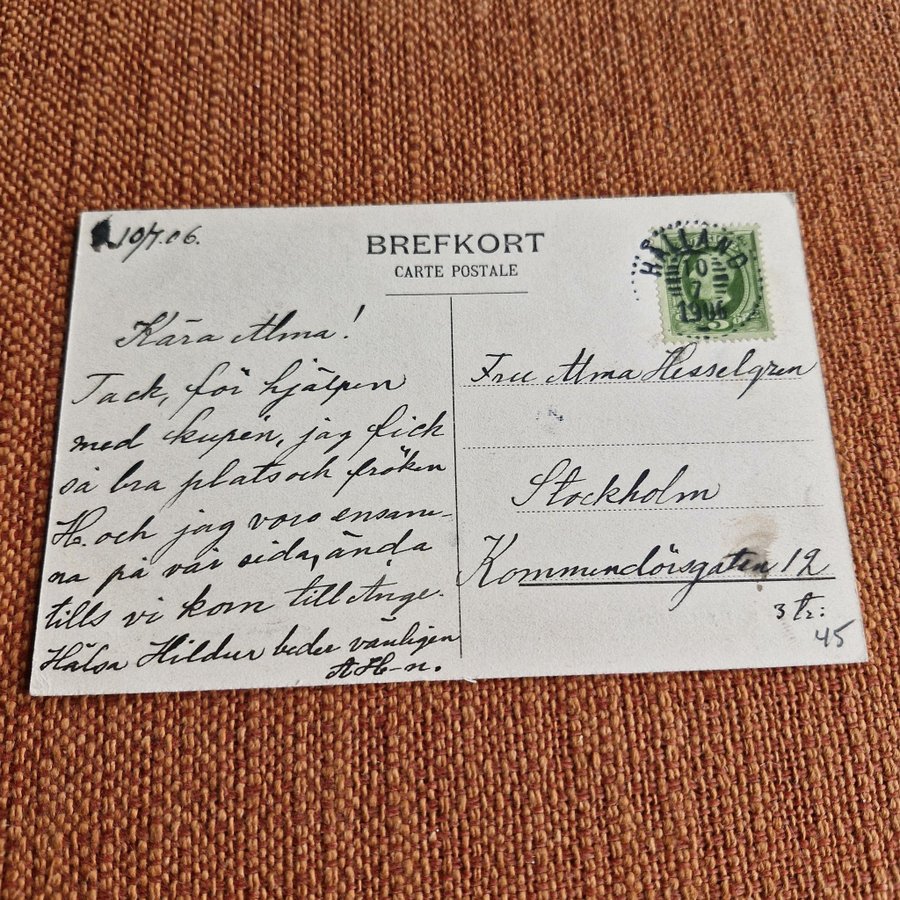 10/7.06.
BREFKORT
CARTE POSTALE
HÅLLAND
10
7
1906
5
Kära Alma!
Tack, för hjälpen
med kupén, jag fick
så bra plats och fröken
H. och jag voro ensam-
na på vår sida, ända
tills vi kom till Ånge.
Hälsa Hildur beder vänligen
A H-n.
Fru Alma Hesselgren
Stockholm
Kommendörsgatan 12
3 tr:
45